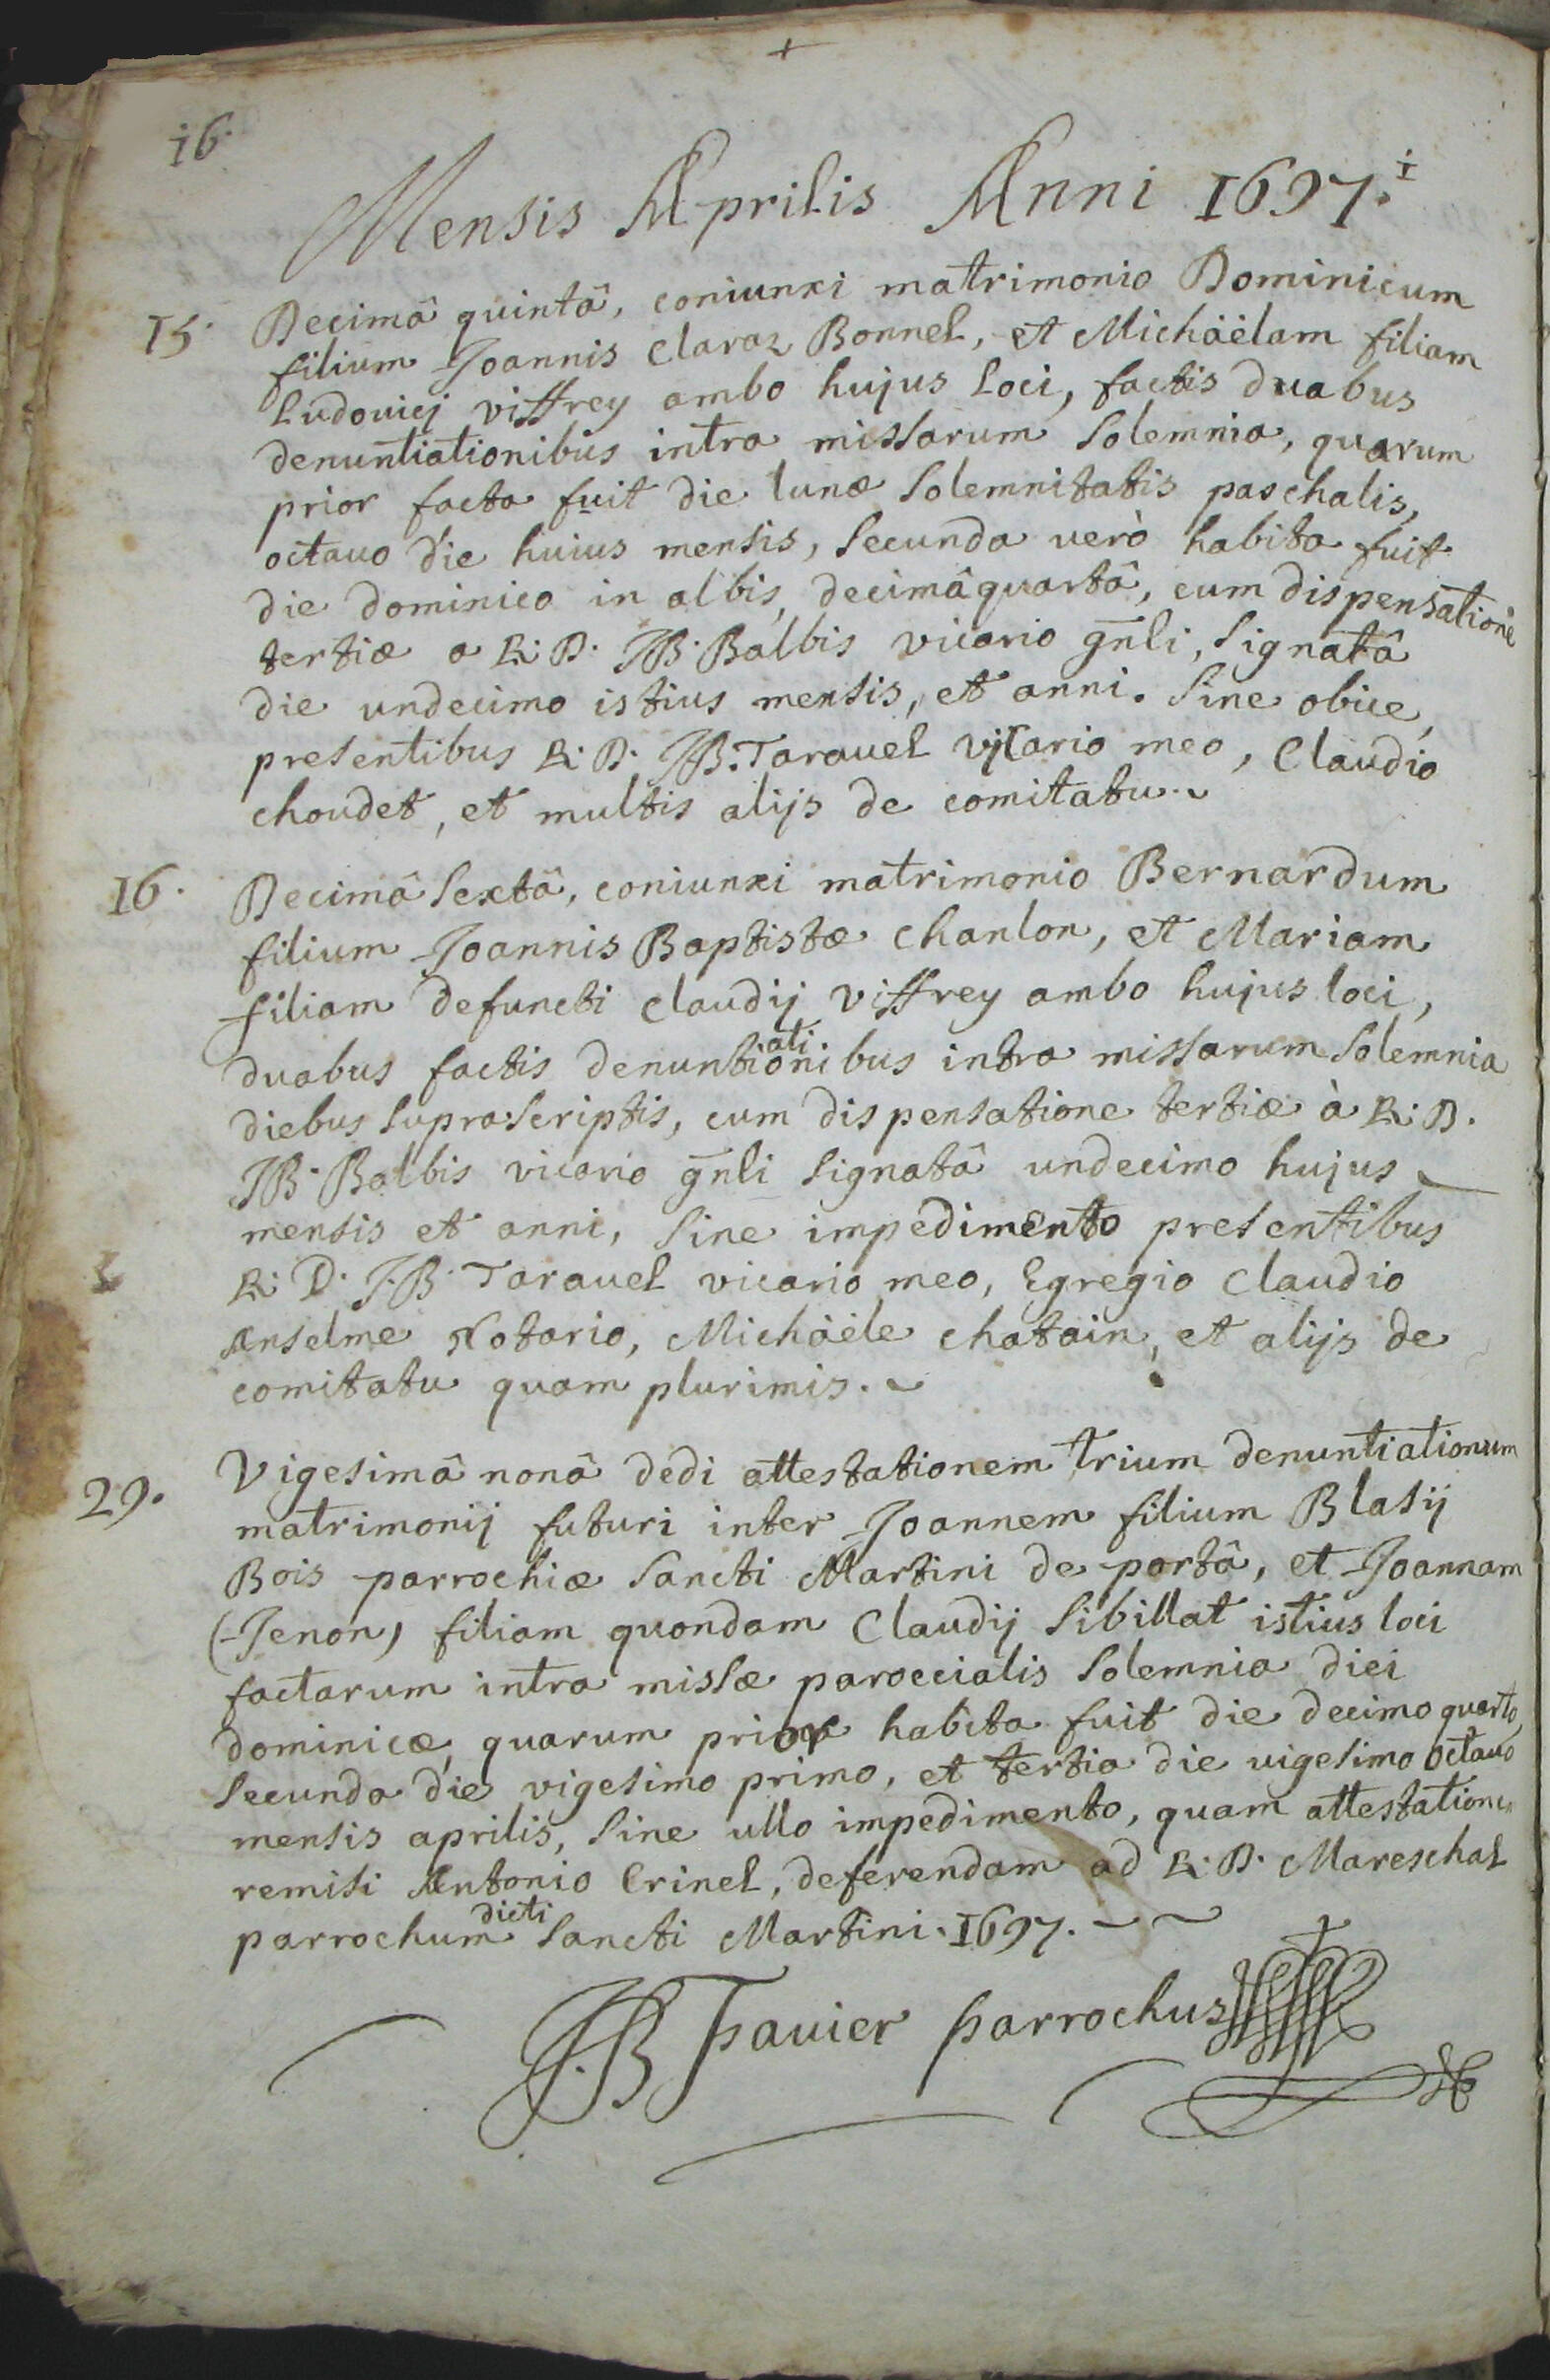 16.
Mensis Aprilis Anni 1697.
15. Decimâ quintâ, coniunxi matrimonio Dominicum
filium Joannis Claraz Bonnel, et Michäëlam filiam
Ludovicj Viffrey ambo hujus loci, factis duabus
denuntiationibus intra missarum solemnia, quarum
prior facta fuit die lunæ solemnitatis paschalis,
octavo die huius mensis, secunda verò habita fuit
die dominico in albis, decimâquartâ, cum dispensatione
tertiæ a R: D. JB. Balbis vicario gn̄li, signatâ
die undecimo istius mensis, et anni. Sine obice,
presentibus R. D. JB. Taravel vicario meo, Claudio
Choudet, et multis alijs de comitatu.
16. Decimâ sextâ, coniunxi matrimonio Bernardum
filium Joannis Baptistæ Chanlon, et Mariam
filiam defuncti Claudij Viffrey ambo hujus loci,
duabus factis denuntiationibus intra missarum solemnia
diebus suprascriptis, cum dispensatione tertiæ à R: D.
JB. Balbis vicario gn̄li signatâ undecimo hujus
mensis et anni, sine impedimento presentibus
R: D. J.B. Taravel vicario meo, Egregio Claudio
Anselme Notario, Michäële Chatain, et alijs de
comitatu quam plurimis.
29. Vigesimâ nonâ dedi attestationem trium denuntiationum
matrimonij futuri inter Joannem filium Blasij
Bois parrochiæ Sancti Martini de portâ, et Joannam
(Jenon) filiam quondam Claudij Sibillat istius loci
factarum intra missæ paroccialis solemnia diei
dominicæ, quarum prior habita fuit die decimo quarto,
secunda die vigesimo primo, et tertia die vigesimo octavo
mensis aprilis, sine ullo impedimento, quam attestationem
remisi Antonio Crinel, deferendam ad R: D. Mareschal
parrochum dicti Sancti Martini. 1697.
JB Travier parrochus